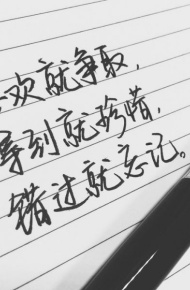 欢就争取,
得到就珍惜,
错过就忘记。